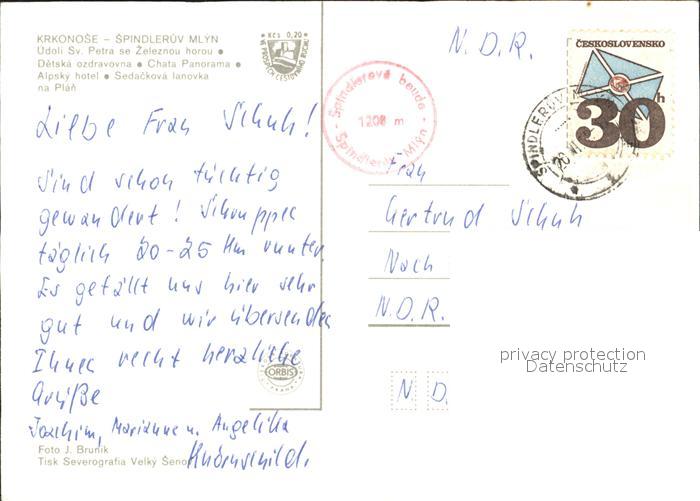 KRKONOŠE – ŠPINDLERŮV MLÝN
Údolí Sv. Petra se Železnou horou •
Dětská ozdravovna • Chata Panorama •
Alpský hotel • Sedačková lanovka
na Pláň
Kčs 0,20
VE PROSPĚCH CESTOVNÍHO RUCHU
Liebe Frau Schuh!
Sind schon tüchtig
gewandert! Schruppen
täglich 20-25 Km runter.
Es gefällt uns hier sehr
gut und wir übersenden
Ihnen recht herzliche
Grüße
Joachim, Marianne u. Angelika
ORBIS
PRAHA
Foto J. Bruník
Tisk Severografia Velký Šeno
Špindlerova bouda
1208 m
Špindlerův Mlýn
N.D.R.
ČESKOSLOVENSKO
30h
ŠPINDLERŮV
Frau
Gertrud Schuh
Noch
N.D.R.
N D.
privacy protection
Datenschutz